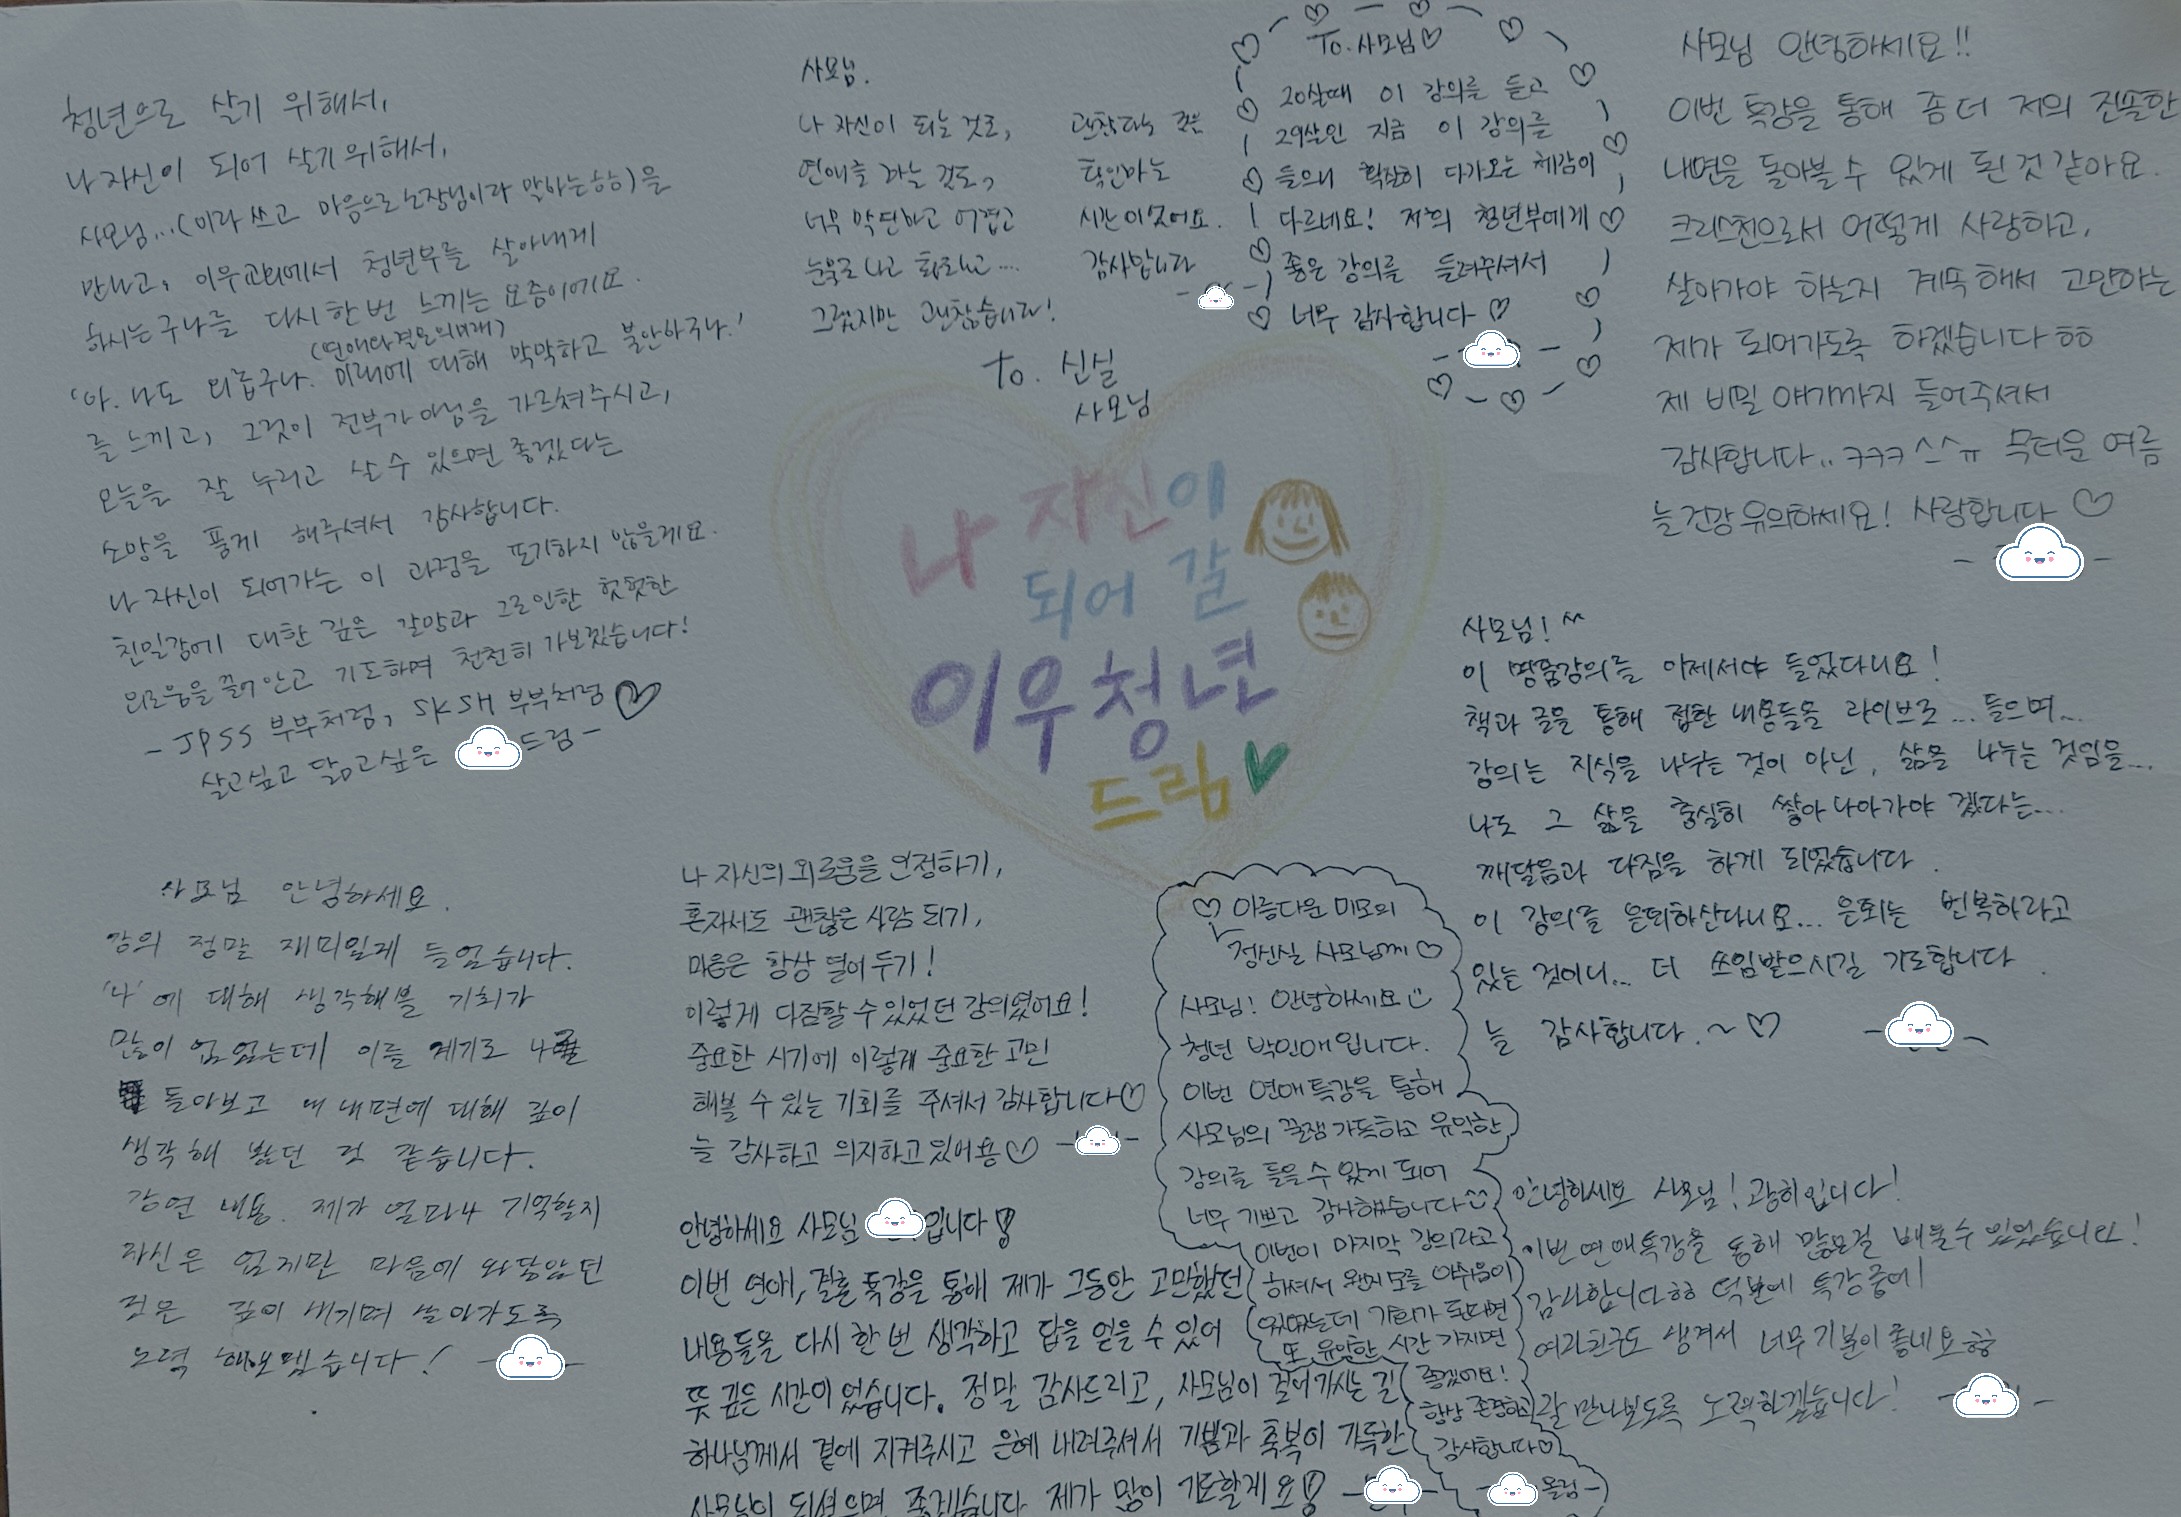 청년으로 살기 위해서,
나 자신이 되어 살기 위해서,
사모님...(이라 쓰고 마음으로 소장님이라 말하는ㅎㅎ)을
만나고, 이우교회에서 청년부를 살아내게
하시는구나를 다시 한번 느끼는 요즘이에요.
(연애나 결혼의 미래)
'아. 나도 외롭구나. 미래에 대해 막막하고 불안하구나.'
를 느끼고, 그것이 전부가 아님을 가르쳐주시고,
오늘을 잘 누리고 살 수 있으면 좋겠다는
소망을 품게 해주셔서 감사합니다.
나 자신이 되어가는 이 과정을 포기하지 않을게요.
친밀감에 대한 깊은 갈망과 그로인한 헛헛한
외로움을 끌어안고 기도하며 천천히 가보겠습니다!
-JPSS 부부처럼, SKSH 부부처럼♡
살고싶고 닮고싶은 드림-
사모님.
나 자신이 되는 것도,
연애를 하는 것도,
너무 막연하고 어렵고
눈물도 나고 화도나고...
그렇지만 괜찮습니다!
괜찮다는 것을
확인하는
시간이었어요.
감사합니다
To. 사모님♡
20살때 이 강의를 듣고
29살인 지금 이 강의를
들으니 확실히 다가오는 체감이
다르네요! 저희 청년부에게
좋은 강의를 들려주셔서
너무 감사합니다 ♡
사모님 안녕하세요!!
이번 특강을 통해 좀 더 저의 진솔한
내면을 돌아볼 수 있게 된 것 같아요.
크리스천으로서 어떻게 사랑하고,
살아가야 하는지 계속해서 고민하는
제가 되어가도록 하겠습니다ㅎㅎ
제 비밀 얘기까지 들어주셔서
감사합니다..ㅋㅋㅋㅅㅅㅠ 무더운 여름
늘 건강 유의하세요! 사랑합니다 ♡
To. 신실
사모님
나 자신이
되어 갈
이우청년
드림♥
사모님!^^
이 명품강의를 이제서야 들었다니요!
책과 글을 통해 접한 내용들을 라이브로... 들으며...
강의는 지식을 나누는 것이 아닌, 삶을 나누는 것임을...
나도 그 삶을 충실히 쌓아 나아가야 겠다는...
깨달음과 다짐을 하게 되었습니다.
이 강의를 은퇴하신다니요... 은퇴는 번복하라고
있는 것이니... 더 쓰임받으시길 기도합니다.
늘 감사합니다.~♡
사모님 안녕하세요.
강의 정말 재미있게 들었습니다.
'나'에 대해 생각해볼 기회가
많이 없었는데 이를 계기로 나를
돌아보고 내 내면에 대해 깊이
생각해 봤던 것 같습니다.
강연 내용. 제가 얼마나 기억할지
자신은 없지만 마음에 와닿았던
것은 깊이 새기며 살아가도록
노력 해보겠습니다!
나 자신의 외로움을 인정하기,
혼자서도 괜찮은 사람 되기,
마음은 항상 열어 두기!
이렇게 다짐할 수 있었던 강의였어요!
중요한 시기에 이렇게 중요한 고민
해볼 수 있는 기회를 주셔서 감사합니다♡
늘 감사하고 의지하고 있어용♡
안녕하세요 사모님 입니다!
이번 연애, 결혼 특강을 통해 제가 그동안 고민했던
내용들을 다시 한 번 생각하고 답을 얻을 수 있어
뜻 깊은 시간이었습니다. 정말 감사드리고, 사모님이 걸어가시는 길
하나님께서 곁에 지켜주시고 은혜 내려주셔서 기쁨과 축복이 가득한
사모님이 되셨으면 좋겠습니다 제가 많이 기도할게요!
♡ 아름다운 미모의
정신실 사모님께 ♡
사모님! 안녕하세요
청년 박인애입니다.
이번 연애특강을 통해
사모님의 꿀잼 가득하고 유익한
강의를 들을 수 있게 되어
너무 기쁘고 감사했습니다
이번이 마지막 강의라고
하셔서 왠지 모를 아쉬움이
있었는데 기회가 된다면
또 유익한 시간 가지면
좋겠어요!
항상 존경하고
감사합니다♡
올림-
안녕하세요 사모님! 광히입니다!
이번 연애특강을 통해 많은걸 배울수 있었습니다!
감사합니다ㅎㅎ 덕분에 특강중에
여자친구도 생겨서 너무 기분이 좋네요ㅎㅎ
잘 만나보도록 노력하겠습니다!